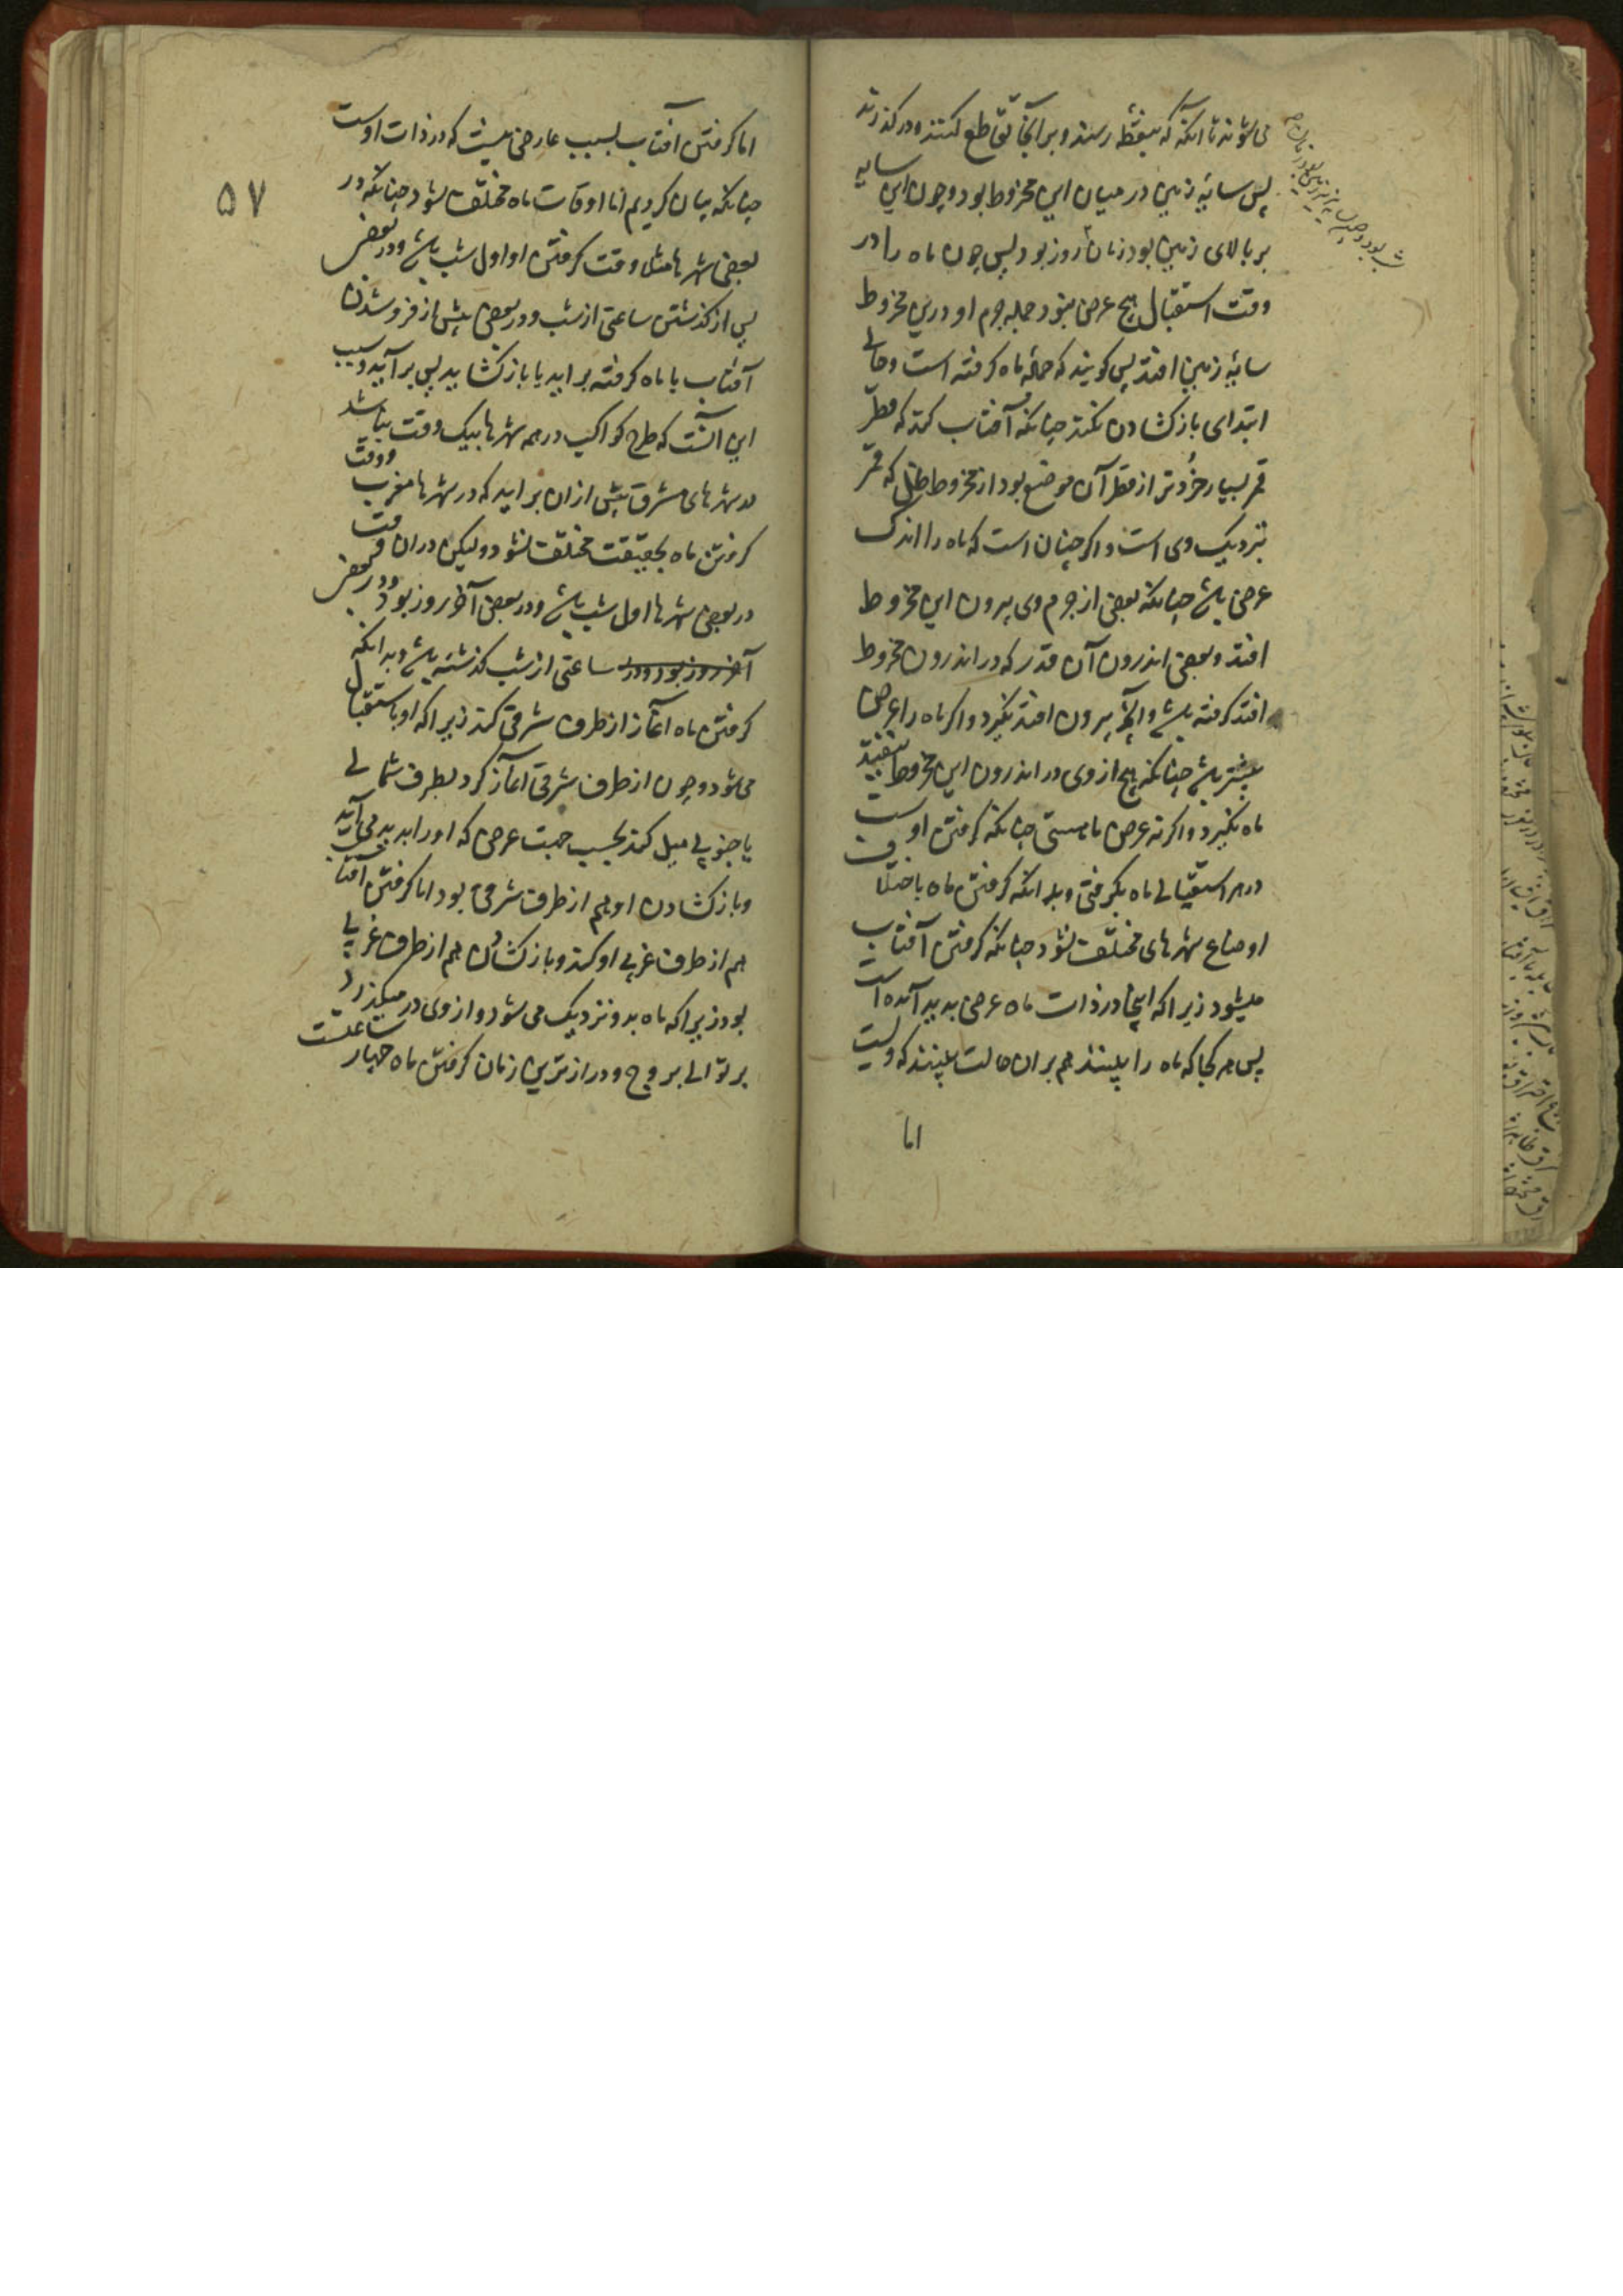 می‌شوند تا آنکه که بنقطه رسند و بر آنجا تقاطع کنند و در گذرند
پس سایهٔ زمین در میان این مخروط بود و چون این سایه
بر بالای زمین بود زمان روز بود پس چون ماه را در
وقت استقبال هیچ عرض نبود جمله جرم او درین مخروط
سایهٔ زمین افتد پس کویند که جملهٔ ماه کرفته است و حالی
ابتدای باز کشادن نکند چنانکه آفتاب کند که قطر
قمر بسیار خُردتر از قطر آن موضع بود از مخروط ظل که قمر
نزدیک وی است و اکر چنان است که ماه را اندک
عرض باشد چنانکه بعضی از جرم وی بیرون این مخروط
افتد و بعضی اندرون آن قدر که در اندرون مخروط
افتد کرفته باشد و آنچه بیرون افتد نکیرد و اکر ماه را عرض
بیشتر باشد چنانکه هیچ از وی در اندرون این مخروط نیفتد
ماه نکیرد و اکر نه عرض ماهستی چنانکه کرفتن اوست
در هر استقبالی ماه بکرفتی و بدانکه کرفتن ماه باختلاف
اوضاع شهرهای مختلف نشود چنانکه کرفتن آفتاب
میشود زیرا که اینجا در ذات ماه عرضی پدید آمده است
پس هر کجا که ماه را بینند هم بران حالت بینند که ویست
اما
۵۷
اما کرفتن آفتاب بسبب عارضی نیست که در ذات اوست
چنانکه بیان کردیم اما اوقات ماه مختلف شود چنانکه در
بعضی شهرها مثلا وقت کرفتن او اول شب باشد و در بعضی
پس از کذشتن ساعتی از شب و در بعضی پیش از فرو شدن
آفتاب یا ماه کرفته براید یا باز کشاید پس برآید و سبب
این آنست که طلوع کواکب در همه شهرها بیک وقت نباشد
در شهرهای مشرق پیش ازان براید که در شهرها مغرب و وقت
کرفتن ماه بحقیقت مختلف نشود ولیکن دران وقت
در بعضی شهرها اول شب باشد و در بعضی آخر روز بود و در بعضی
آخر روز بود و در ساعتی از شب کذشته باشد و بدانکه
کرفتن ماه آغاز از طرف شرقی کند زیرا که او باستقبال
می‌شود و چون از طرف شرقی آغاز کرد بطرف شمالی
یا جنوبی میل کند بحسب جهت عرض که او را پدید می‌آید
و باز کشادن او هم از طرف شرقی بود اما کرفتن آفتاب
هم از طرف غربی او کند و باز کشادن هم از طرف غربی
بود زیرا که ماه بدو نزدیک می‌شود و از وی در میکذرد
بر توالی بروج و درازترین زمان کرفتن ماه چهار ساعتست